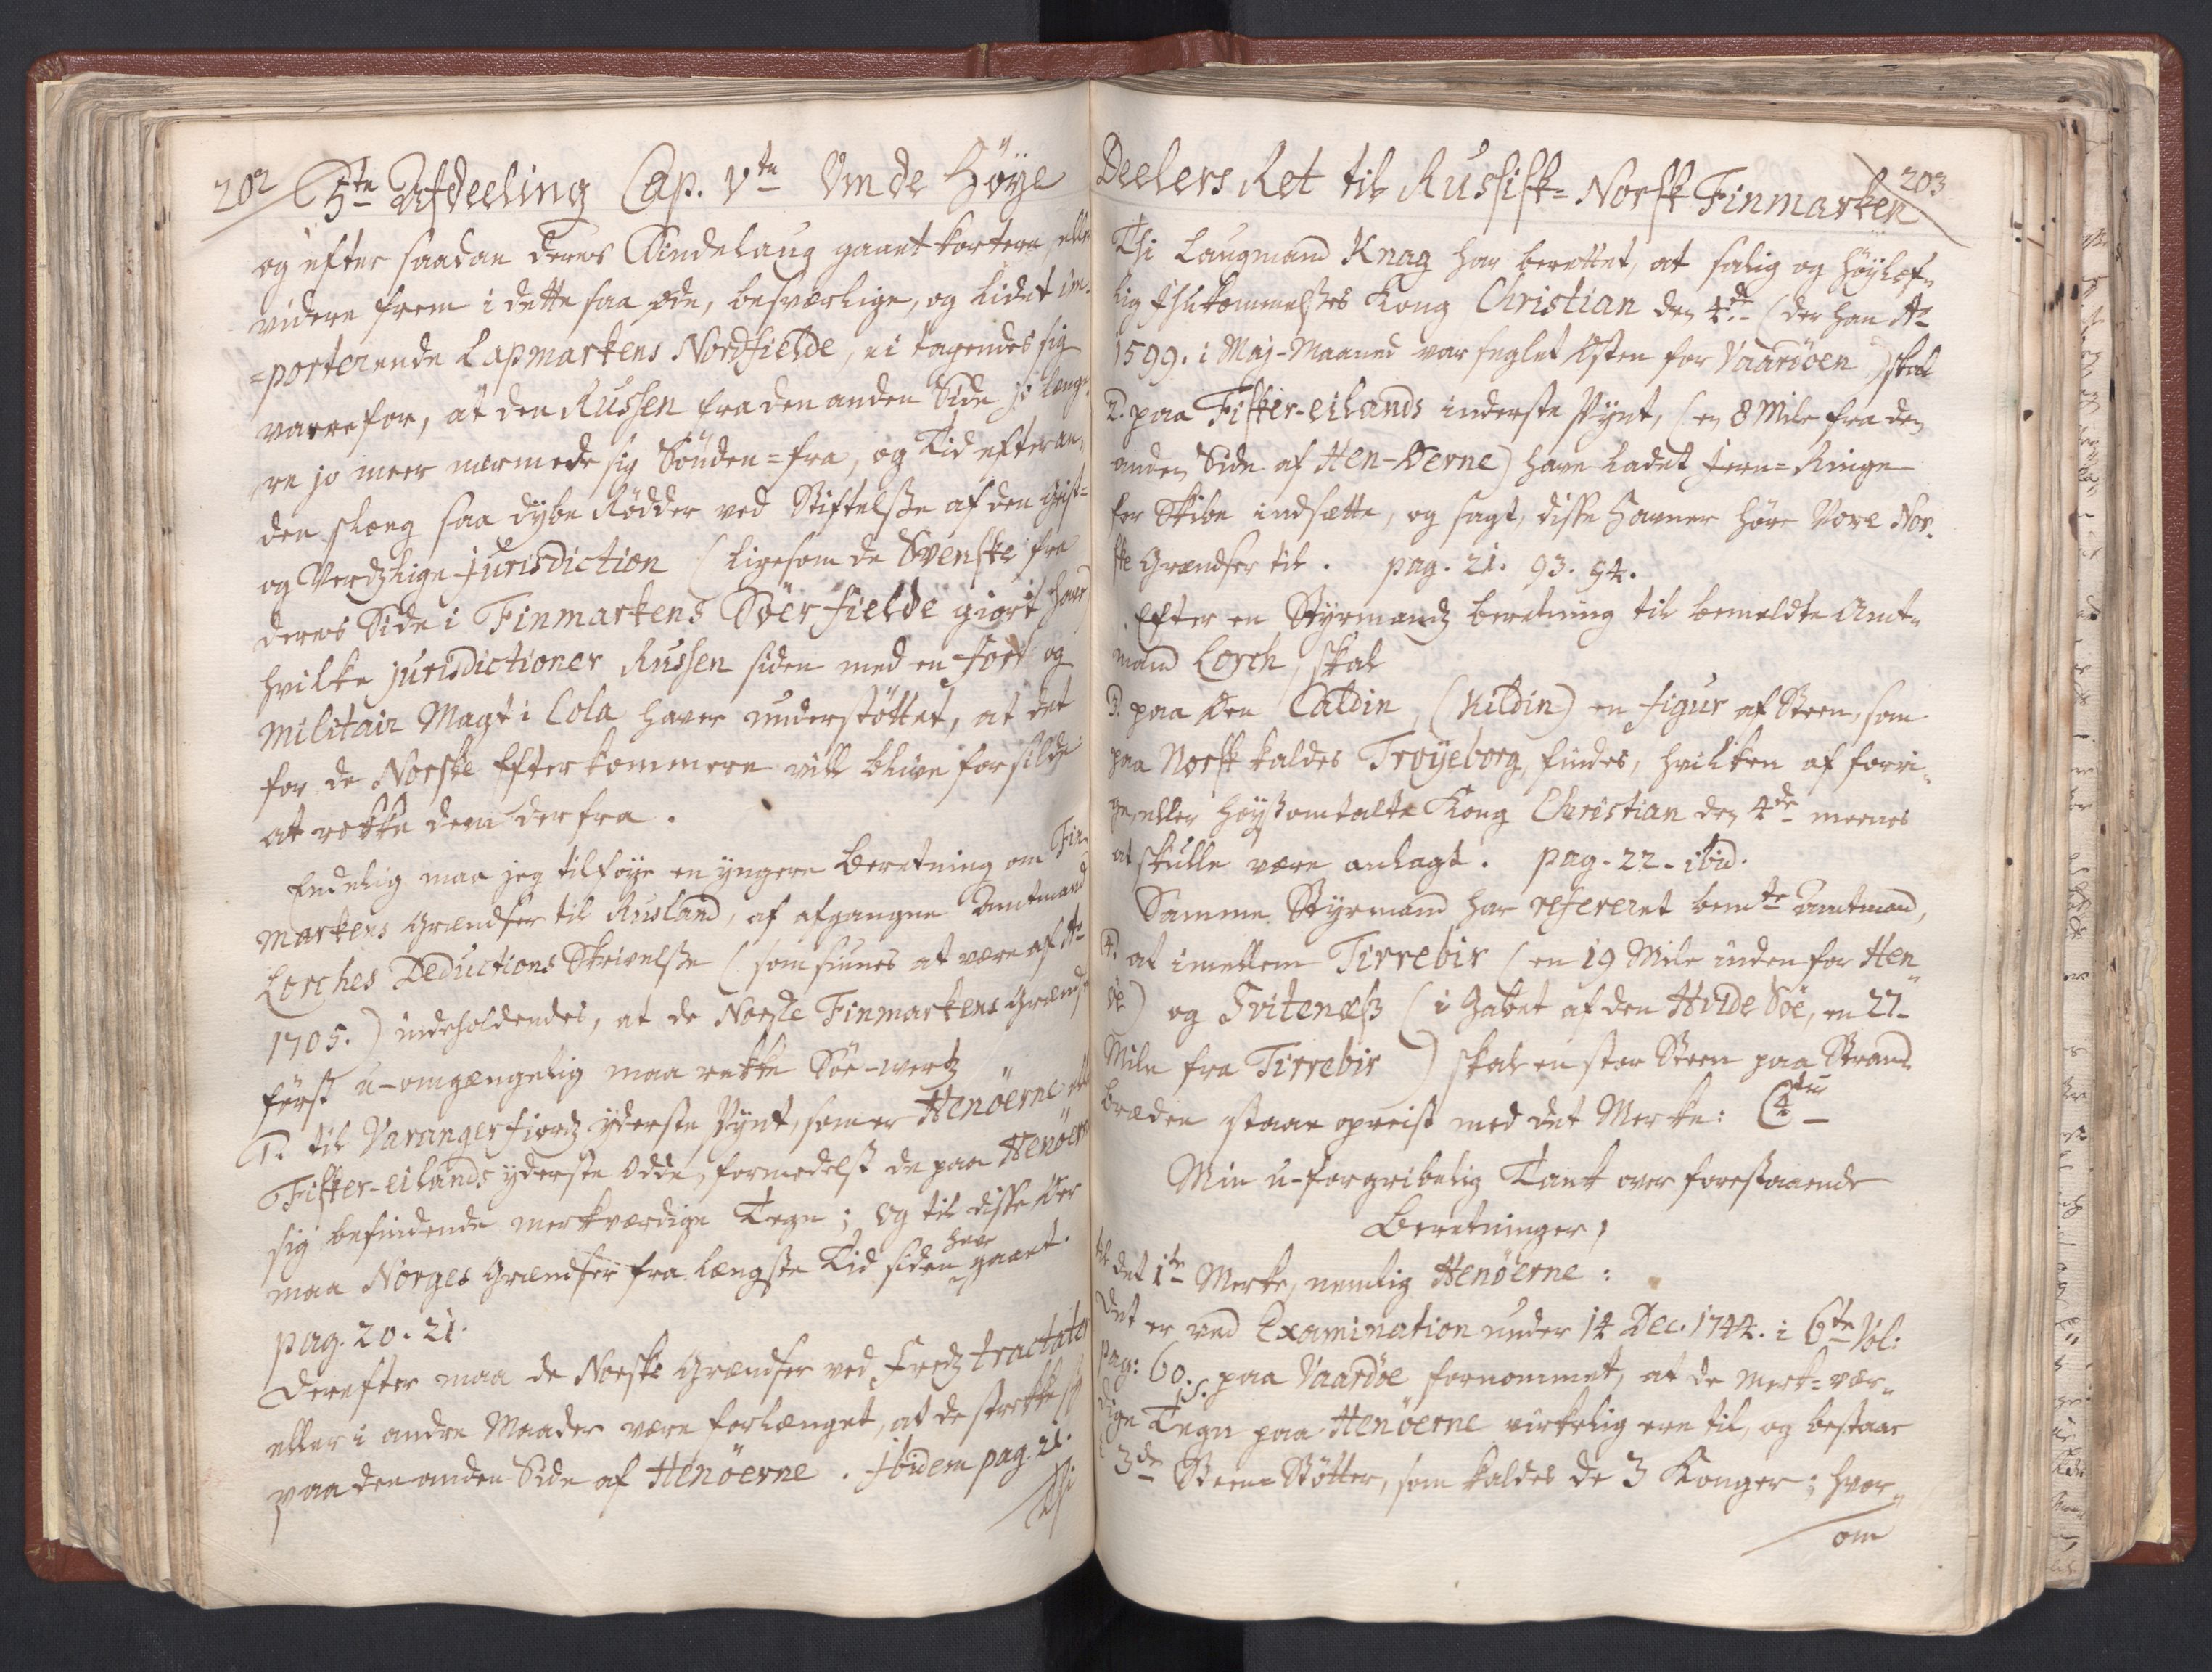 202 5te Afdeeling Cap. Vte Om de Höye
og efter saadan deres Sindelaug gaaet kortere eller
videre frem i dette saa øde, besværlige, og lidet im-
=porterende Lapmarkens Nordfielde, ei tagendes sig
vare for, at den Russen fra den anden Side jo læng-
re jo meer nærmede sig Sönden=fra, og Tid efter an-
den slog saa dybe Rödder ved Stiftelsse af den Geist=
og Verdzlige jurisdiction (ligesom de Svenske fra
deres Side i Finmarkens Söerfielde giort haver
hvilke jurisdictioner Russen siden med en Fort og
Militair Magt i Cola haver understöttet, at det
for de Norske Efterkommere vill blive for silde
at rökke dem derfra.
Endelig maa jeg tilföye en yngere Beretning om Fin-
markens Grændser til Rusland, af afgangne Amtmand
Lorches Deductions Skrivelsse (som siunes at være af Ao
1705.) indeholdendes, at de Norske Finmarkens Grændser
först u-omgængelig maa rekke Söe-werts
1. til Varangerfiords yderste Pynt, som er Henöerne eller
Fisker-eilands yderste Odde, formedelst de paa Henöerne
sig befindende merkværdige Tegn; og til disse Öer
maa Norges Grændser fra længste Tid siden have gaaet.
pag. 20. 21.
Derefter maa de Norske Grændser ved Freds tractater
eller i andre Maader være forlænget, at de strekke sig
paa den anden Side af Henöerne. Ibidem pag. 21.
Thi
Deelers Ret til Russisk=Norsk Finmarken 203
Thi Laugmand Knag har berettet, at salig og höylof-
lig Ihukommelsses Kong Christian den 4de (der han Ao
1599. i Maj-Maaned var seglet Östen for Vaardöen) skal
2. paa Fisker-eilands inderste Pynt, (en 8 Mile fra den
anden Side af Hen-Öerne) have ladet Jern=Ringe
for Skibe indsætte, og sagt, disse Havner höre Vore Nor-
ske Grændser til. pag. 21. 93. 94.
Efter en Styrmands beretning til bemeldte Amt-
mand Lorch, skal
3. paa Öen Caldin, (Kildin) en figur af Steen, som
paa Norsk kaldes Tröyeborg, findes, hvilken af forri-
ge, eller höystomtalte Kong Christian den 4de meenes
at skulle være anlagt. pag. 22. ibid.
Samme Styrmand har refereret bemte Amtmand,
4. at imellem Tirrebir (en 19 Mile inden for Hen-
öe) og Svitenæss (i Gabet af den Hvide Söe, en 27-
Mile fra Tirrebir) skal en stor Steen paa Strand-
bræden staae opreist med det Merke: C4tus
Min u-forgribelig Tank over forestaaende
Beretninger,
til det 1te Merke, nemlig Henöerne:
Det er ved Examination under 14 Dec. 1744. i 6te Vol:
pag: 60. s. paa Vaardöe fornommet, at de Merk=vær-
dige Tegn paa Henöerne virkelig ere til, og bestaae
i 3de Steen=Stötter, som kaldes de 3 Konger; hvor-
om